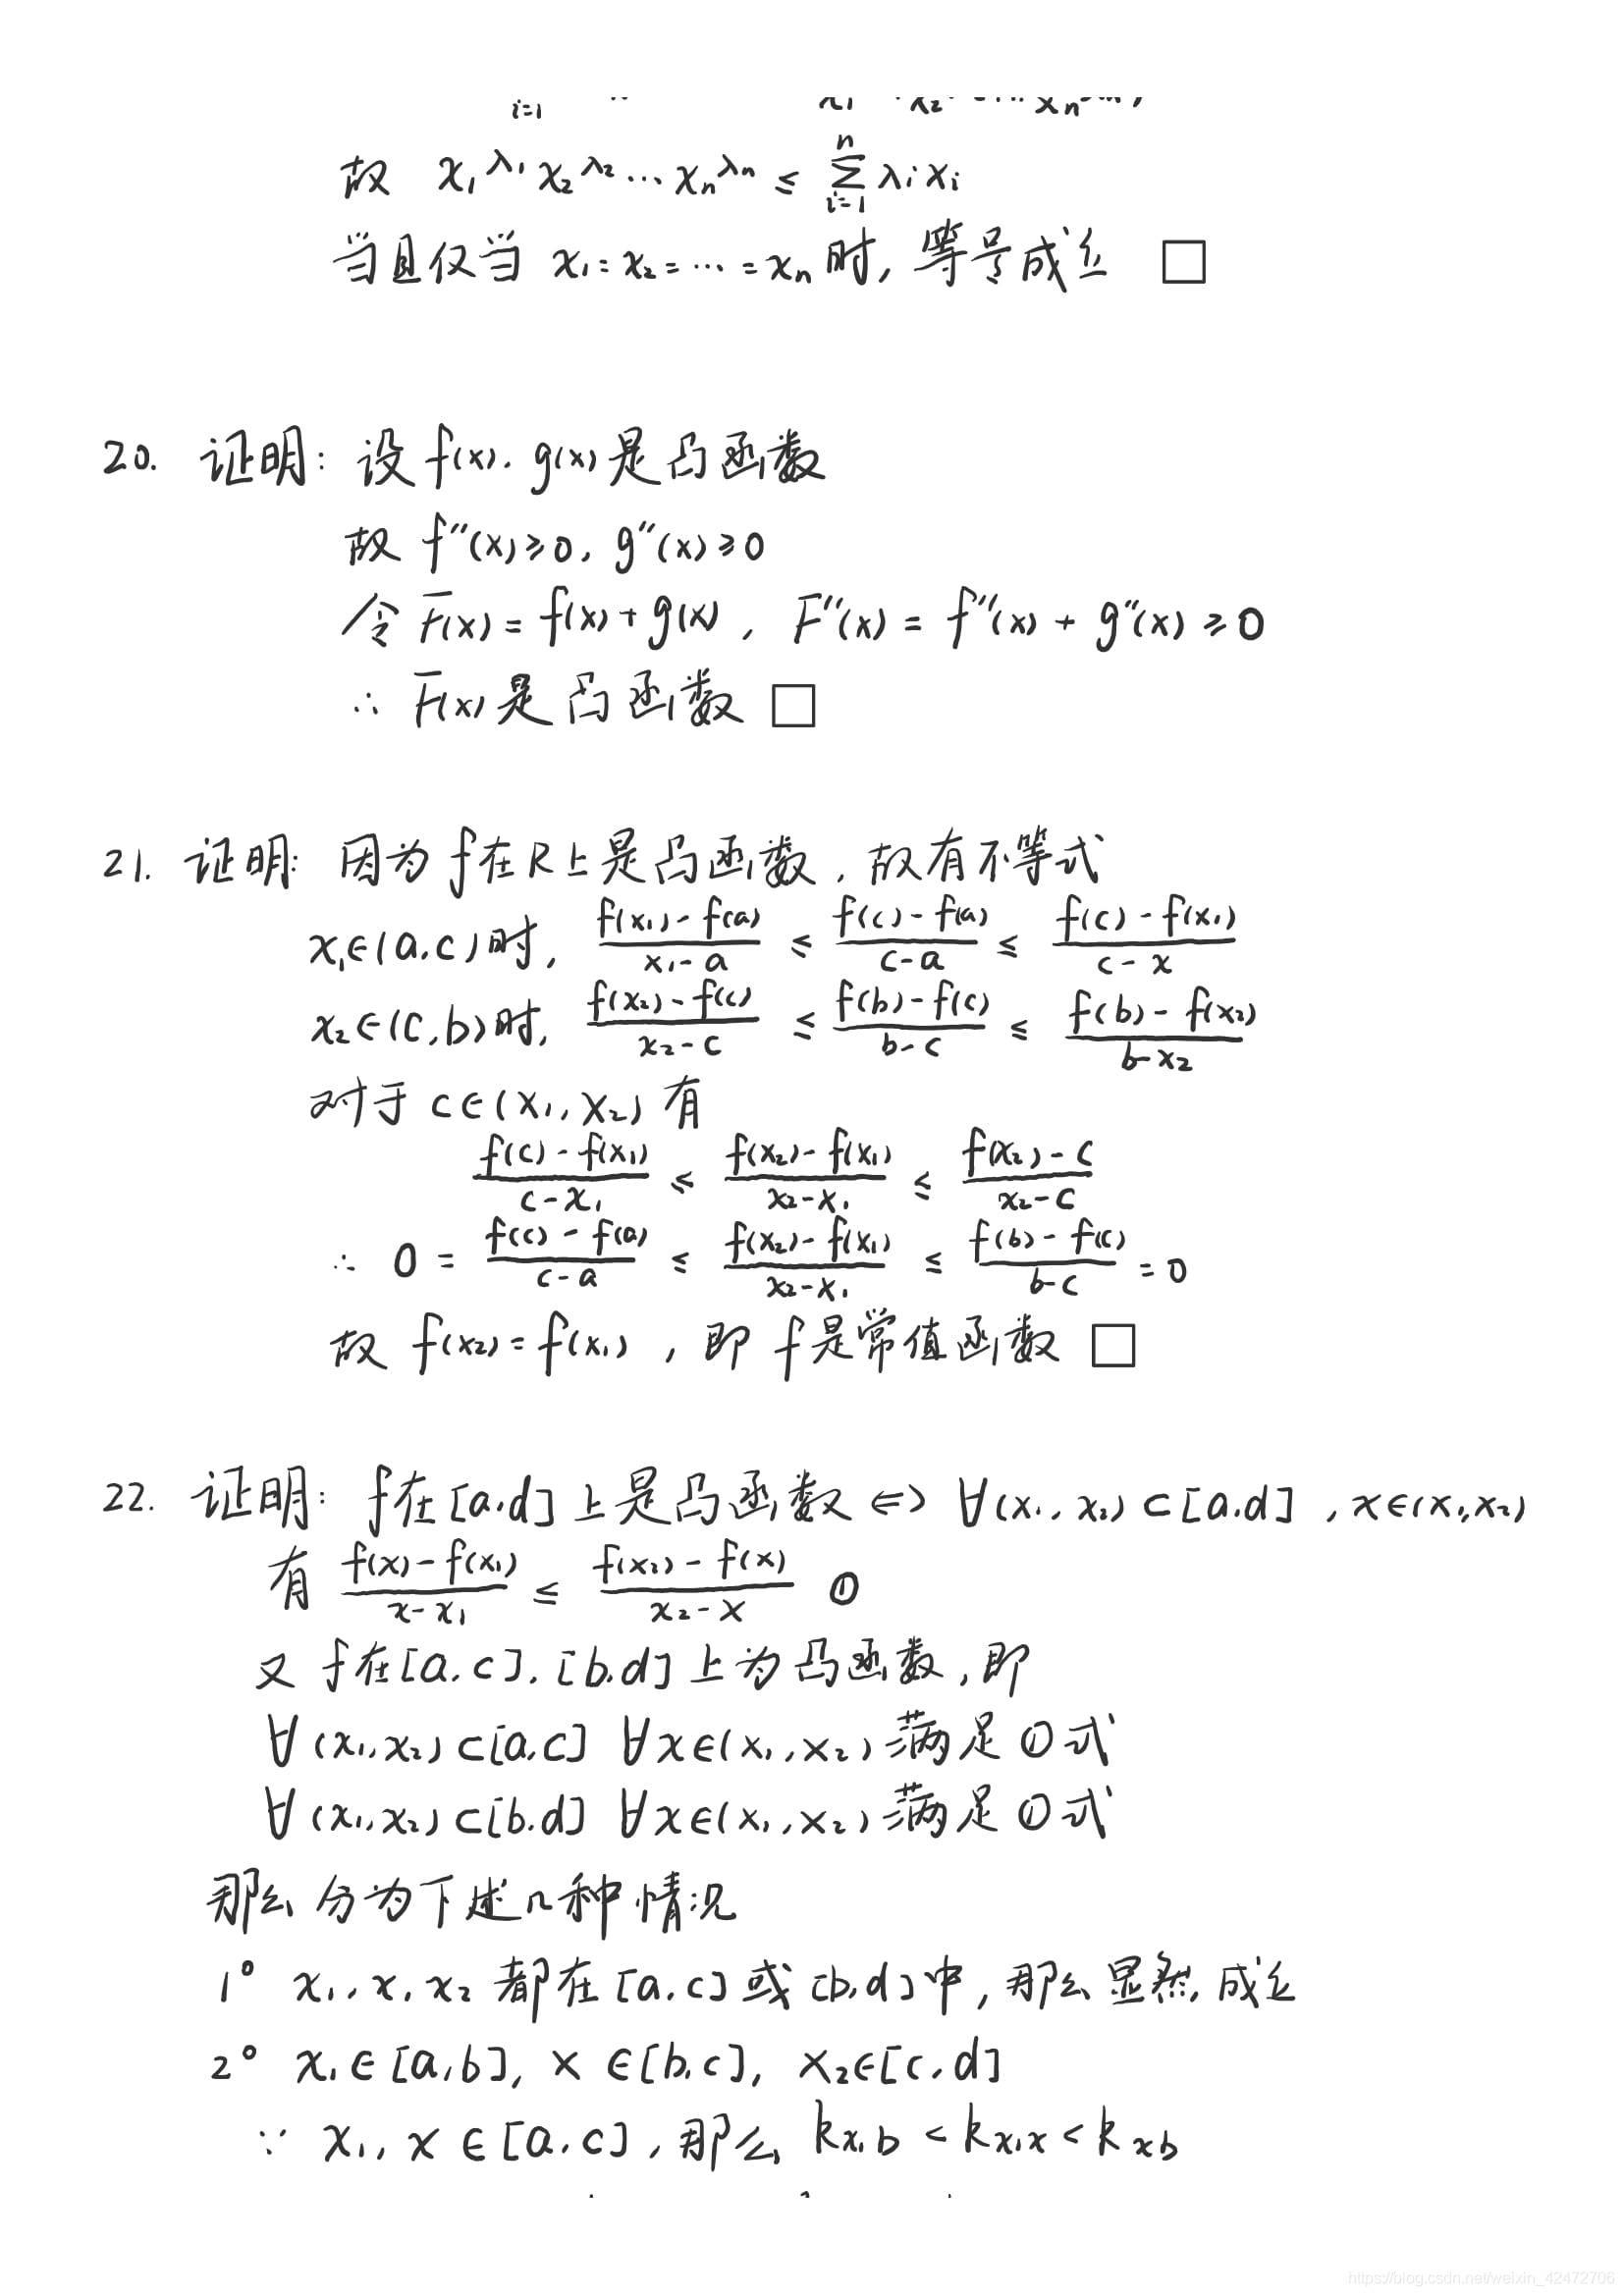 i=1
故 x₁^λ₁ x₂^λ₂ ··· xₙ^λₙ ≤ Σ_{i=1}^{n} λᵢxᵢ
当且仅当 x₁=x₂=···=xₙ时, 等号成立 □
20. 证明: 设 f(x). g(x) 是凸函数
故 f″(x)≥0, g″(x)≥0
令 F(x) = f(x)+g(x) , F″(x) = f″(x) + g″(x) ≥ 0
∴ F(x) 是凸函数 □
21. 证明: 因为 f在R上是凸函数, 故有不等式
x₁∈(a.c)时, (f(x₁)-f(a))/(x₁-a) ≤ (f(c)-f(a))/(c-a) ≤ (f(c)-f(x₁))/(c-x)
x₂∈(c,b)时, (f(x₂)-f(c))/(x₂-c) ≤ (f(b)-f(c))/(b-c) ≤ (f(b)-f(x₂))/(b-x₂)
对于 c∈(x₁, x₂) 有
(f(c)-f(x₁))/(c-x₁) ≤ (f(x₂)-f(x₁))/(x₂-x₁) ≤ (f(x₂)-c)/(x₂-c)
∴ 0 = (f(c)-f(a))/(c-a) ≤ (f(x₂)-f(x₁))/(x₂-x₁) ≤ (f(b)-f(c))/(b-c) = 0
故 f(x₂)=f(x₁) , 即 f是常值函数 □
22. 证明: f在[a.d]上是凸函数 ⇔ ∀(x₁, x₂)⊂[a.d] , x∈(x₁,x₂)
有 (f(x)-f(x₁))/(x-x₁) ≤ (f(x₂)-f(x))/(x₂-x) ①
又 f在[a.c]. [b.d]上为凸函数, 即
∀(x₁,x₂)⊂[a,c] ∀x∈(x₁,x₂)满足①式
∀(x₁,x₂)⊂[b.d] ∀x∈(x₁,x₂)满足①式
那么分为下述几种情况
1° x₁, x, x₂ 都在[a.c]或[b,d]中, 那么显然成立
2° x₁∈[a,b], x∈[b,c], x₂∈[c,d]
∵ x₁, x ∈[a,c], 那么 k_{x₁b} < k_{x₁x} < k_{xb}
https://blog.csdn.net/weixin_42472706